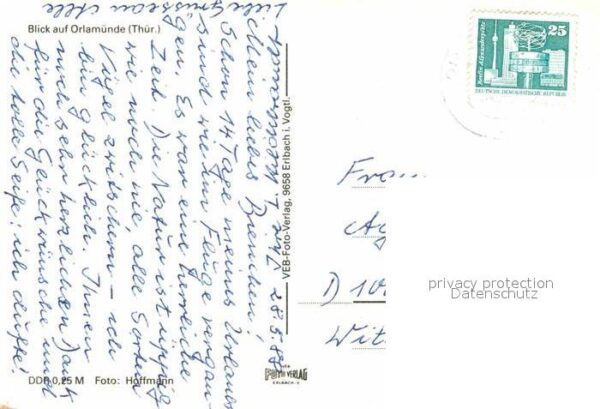 Blick auf Orlamünde (Thür.)
28.5.88
Mein liebes Bienchen!
Schon 14 Tage meines Urlaubs
sind wie im Fluge vergan-
gen. Es war eine herrliche
Zeit. Die Natur ist üppig
wie noch nie, alle Sorten
Vögel zwitschern – ich
bin glücklich. Ihnen
noch sehr herzlichen Dank
für die Glückwünsche und
die tolle Seife; ich dufte!
Liebe Grüsse an alle
VEB-Foto-Verlag, 9658 Erlbach i. Vogtl.
DDR 0,25 M Foto: Hoffmann
FOTO VERLAG
ERLBACH
25
Berlin, Alexanderplatz
DEUTSCHE DEMOKRATISCHE REPUBLIK
Frau
D 10
Wit
privacy protection
Datenschutz